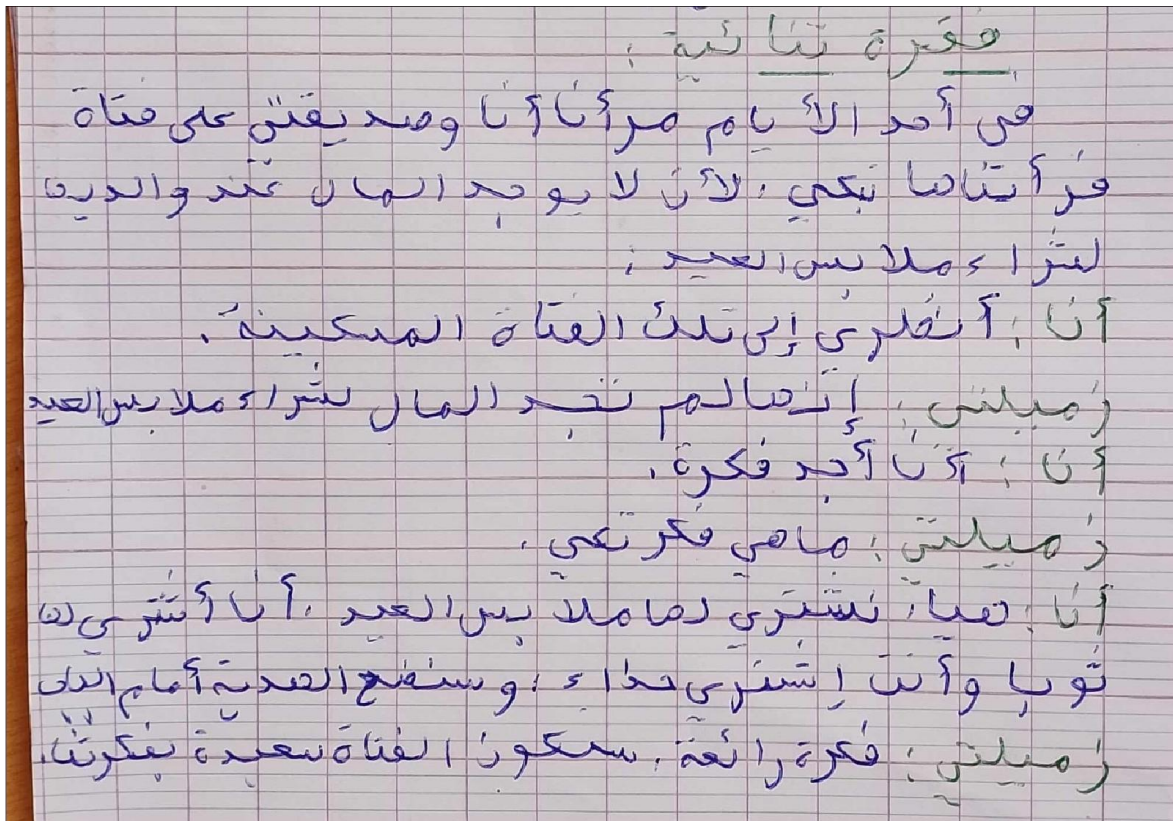 فقرة ثنائية :
في أحد الأيام مرأنا أنا وصديقتي على فتاة
فرأيناها تبكي ، لأن لا يوجد المال عند والدين
لشراء ملابس العيد :
أنا : أنظري إلى تلك الفتاة المسكينة .
زميلتي : إنها لم تجد المال لشراء ملابس العيد
أنا : أنا أجد فكرة .
زميلتي : ما هي فكرتكي .
أنا : هيا نشتري لها ملابس العيد ، أنا أشتري لها
ثوبا وأنت إشتري حذاء ، وسنضع الهدية أمام الباب
زميلتي : فكرة رائعة . ستكون الفتاة سعيدة بفكرتنا .